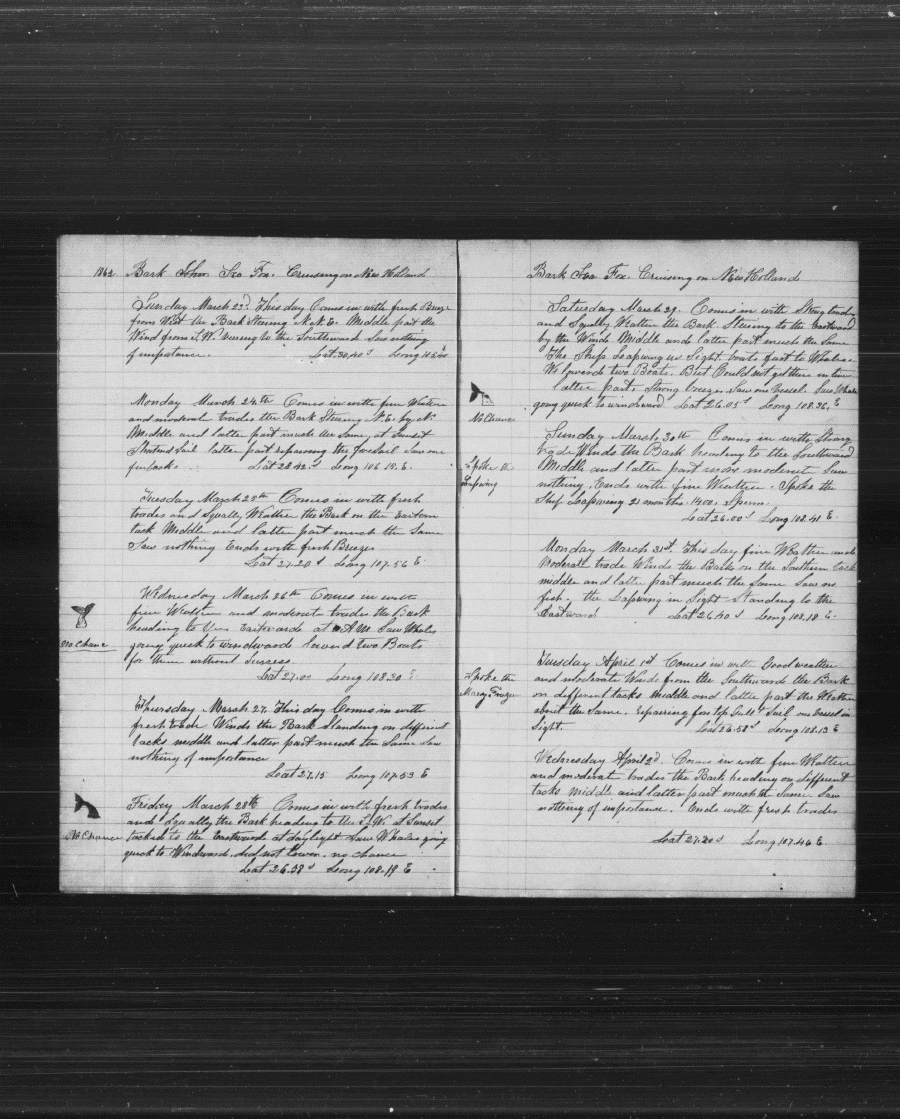 1862 Bark John Sea Fox. Cruising on New Holland
Sunday March 23d. This day Comes in with fresh Breeze
from West the Bark Steering N.N.E. Middle part the
Wind from S.W. veering to the Southward Saw nothing
of importance. Lat 30,40 S Long
Monday March 24th Comes in with fine Weather
and moderate trades the Bark Steering N.E. by N.
Middle and latter part much the Same, at Sunset
Shortend Sail latter part repairing the foresail Saw one
finback. Lat 28.42 S Long 106 E.
Tuesday March 25th Comes in with fresh
trades and Squally Weather the Bark on the Eastern
tack Middle and latter part much the Same
Saw nothing Ends with fresh Breezes
Lat 27.20 S Long 107.56 E.
Wednesday March 26th Comes in with
fine Weather and moderate trades the Bark
heading to the Eastwards at A.M. Saw Whales
No Chance going quick to windwards lowered two Boats
for them without Success.
Lat 27.00 Long 108.20 E
Thursday March 27. This day Comes in with
fresh trade Winds the Bark Standing on different
tacks middle and latter part much the Same Saw
nothing of importance
Lat 27.15 Long 107.53 E
Friday March 28th Comes in with fresh trades
and Squally the Bark heading to the S.W. at Sunset
No Chance tacked to the Eastward at daylight Saw Whales going
quick to Windward did not lower no chance
Lat 26.38 S Long 108.19 E
Bark Sea Fox. Cruising on New Holland
Saturday March 29. Comes in with Strong trades
and Squally Weather the Bark Steering to the Eastward
by the Winds Middle and latter part much the Same
The Ship Lapwing in Sight boats fast to Whales
We lowered two Boats. But Could not get there in time
latter part, Strong breezes, Saw one vessel. Saw Whales
going quick to windward Lat 26.05 S Long 108.36, E
No Chance
Sunday March 30th Comes in with Strong
trade Winds the Bark heading to the Southward
Spoke the Middle and latter part more moderate Saw
Lapwing nothing, Ends with fine Weather. Spoke the
Ship Lapwing 21 months 1400. Sperm.
Lat 26.00 S Long 108.41 E.
Monday March 31st This day fine Weather and
Moderate trade Winds the Bark on the Southern tack
middle and latter part much the Same Saw no
fish. the Lapwing in Sight Standing to the
Eastward Lat 26.40 S Long 108.18 E.
Tuesday April 1st Comes in with Good weather
Spoke the and moderate Winds from the Southwards the Bark
Mary Frazer on different tacks Middle and latter part the Weather
about the Same. repairing Sail one vessel in
Sight. Lat 26.58 S Long 108.13 E
Wednesday April 2d. Comes in with fine Weather
and moderate trades the Bark heading on different
tacks middle and latter part much the Same Saw
nothing of importance. Ends with fresh trades
Lat 27.20 S Long 107.46 E.